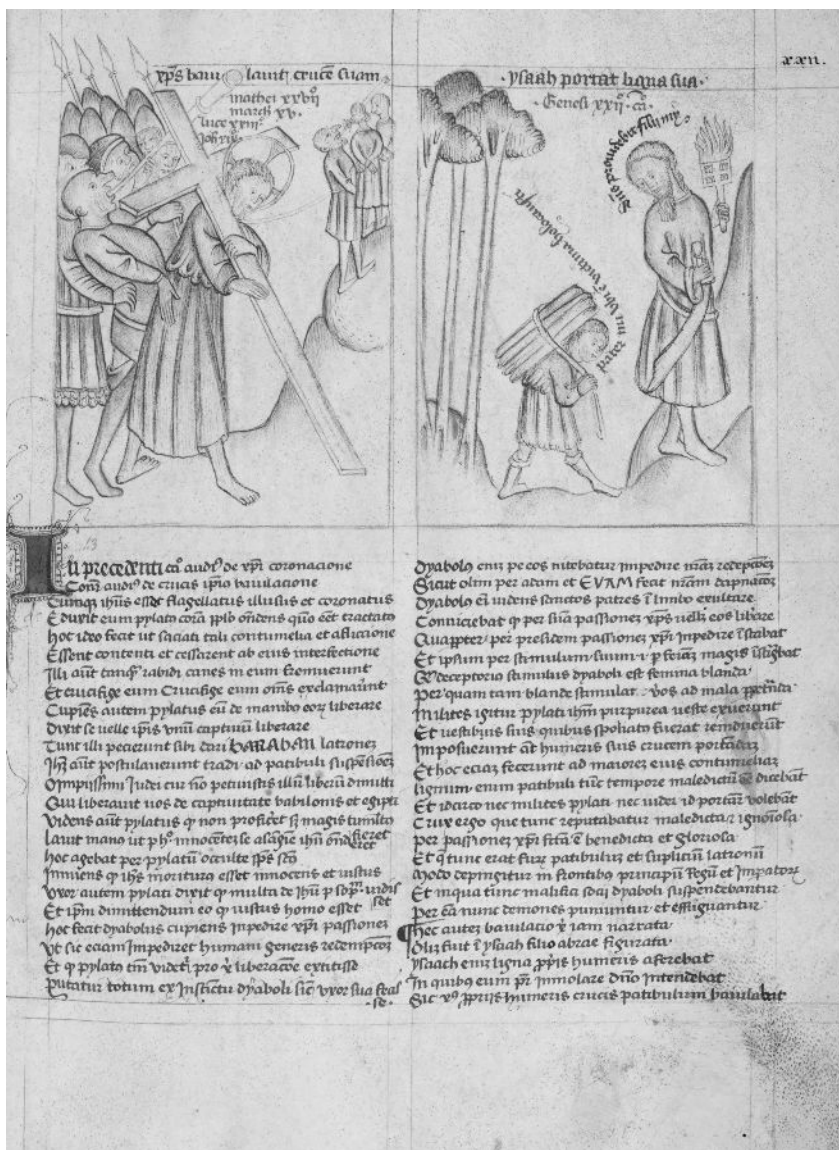 xxii.
xp̄s baiulauit crucē suam
mathei xxvij
marci xv.
luce xxiij
joh xix
ysaah portat ligna sua
Genesi xxij co
dn̄s prouidebit fili mi
pater mi vbi ē victima holocausti
In precedenti co audiuimꝰ de xp̄i coronacione
Consr̄ audiꝰ de crucis ip̄iꝰ baiulacione
Cumqꝫ ihūs esset flagellatus illusus et coronatus
Eduxit eum pylatꝰ corā pplō ōndens quō eēt tractatꝰ
hoc ideo fecit ut saciati tali contumelia et afliccione
Essent contenti et cessarent ab eius interfectione
Illi aūt tanqꝫ rabidi canes in eum fremuerunt
Et crucifige eum Crucifige eum oms̄ exclamauerūt
Cupiēs autem pylatus eū de manibꝰ eorꝫ liberare
Dixit se uelle ip̄is vnū captiuū liberare
Tunc illi pecierunt sibi dari BARABAN latronez
Ihm̄ aūt postulauerunt tradi ad patibuli suspēsionez
O impijssimi iudei cur nō petiuistis illū liberū dimitti
Qui liberauit uos de captiuitate babilonis et egipti
Videns aūt pylatus qꝫ non proficeret sꝫ magis tumultꝰ fieret
Lauit manꝰ ut pho innocētez se a sāgīe ihū ōnderet
hoc agebat per pylatū occulte sp̄s scūs
Innuens qꝫ ihs moriturꝰ esset innocens et iustus
Vxor autem pylati dixit qꝫ multa de ihū p sōpnū uidisset
Et ip̄m dimittendum eo qꝫ iustus homo esset
hoc fecit dyabolus cupiens impedire xp̄i passionez
Vt sic eciam impediret humani generis redempcōez
Et qꝫ pylatꝰ tm̄ videtr̄ pro xi liberacōe extitisse
Putatur totum ex instinctu dyaboli sic vxor sua fecisse
Dyabolꝰ eniz p eos nitebatur impedire nr̄az redepcōez
Sicut olim per adam et EVAM fecit nr̄am dāpnacōez
Dyabolꝰ eī uidens sanctos patres ī limbo exultare
Conniciebat qꝫ per suā passionez xp̄s uellꝫ eos liberare
Quappter per presidem passionez xp̄i impedire īstabat
Et ipsum per stimulum suum i. p feīaz magis īstigabat
Qꝫ deceptorius stimulus dyaboli est femina blanda
Per quam tam blande stimulat vos ad mala ppetrāda
Milites igitur pylati ihm̄ purpurea ueste exuerunt
Et uestibꝫ suis quibus spoliatꝰ fuerat reinduerūt
Imposuerunt aūt humeris suis crucem portādaz
Et hoc eciaz fecerunt ad maiorez eius contumeliaz
lignum enim patibuli tūc tempore maledictū eē dicebāt
Et idcirco nec milites pylati nec iudei id portare volebāt
Crux ergo que tunc reputabatur maledicta et ignōiosa
Per passionez xp̄i fcā ē benedicta et gloriosa
Et qꝫ tunc erat furꝫ patibulum et suplicium latronū
Modo depingitur in frontibꝫ principū Regū et Impatorꝫ
Et in qua tunc malifici socij dyaboli suspendebantur
Per eā nunc demones puniuntur et effugantur
hec autez baiulacio xi iam narrata
Olim fuit ī ysaah filio abrae figurata
ysaach eniz ligna ppijs humeris aferebat
In quibꝫ eum pr̄ immolare dn̄o intendebat
Sic xps ppijs humeris crucis patibulum baiulabat